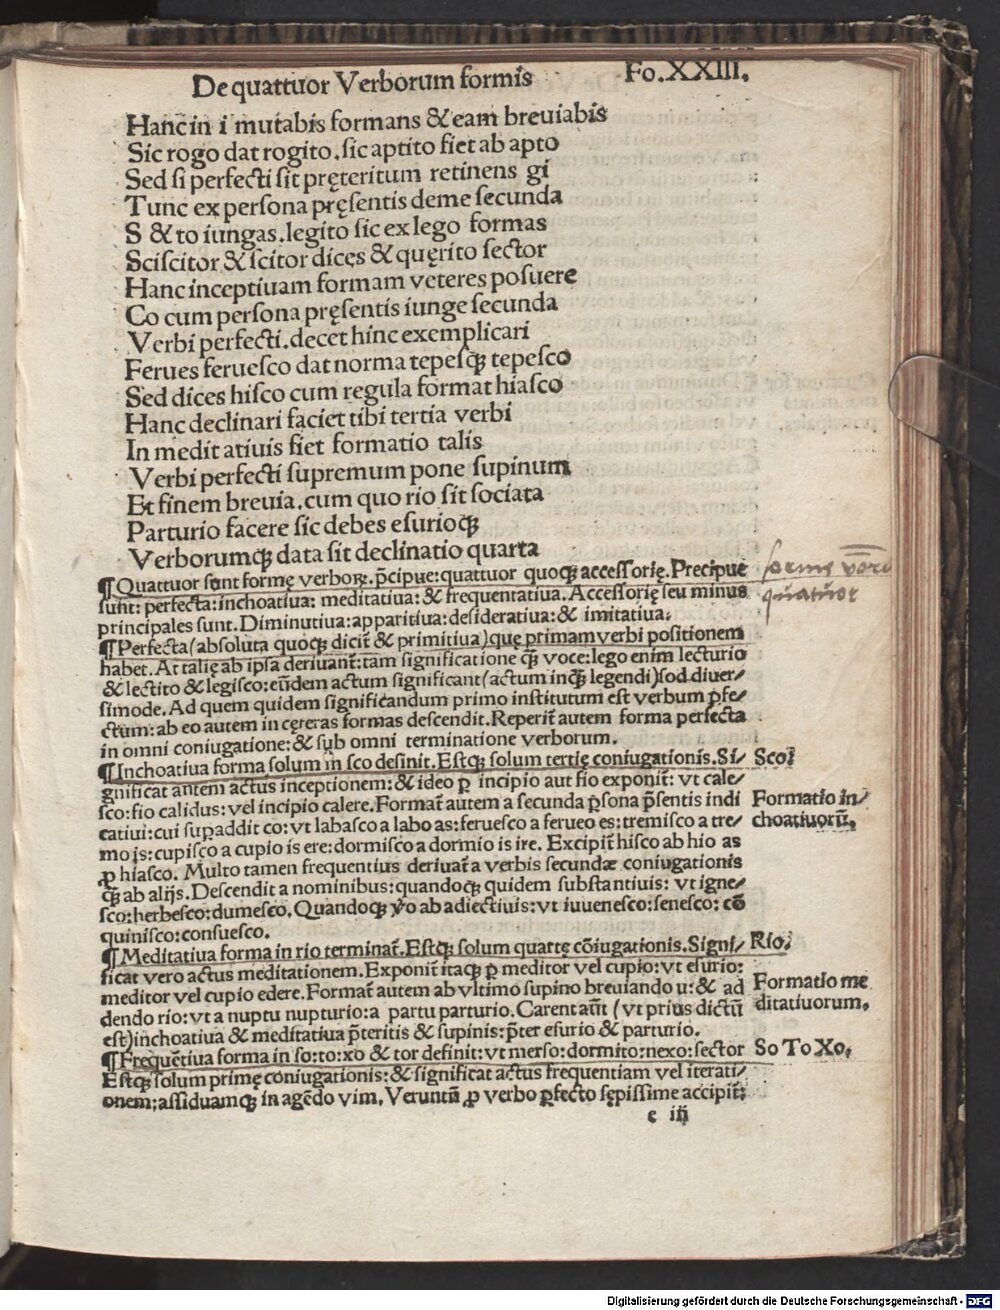 De quattuor Verborum formis
Fo.XXIII.
Hanc in i mutabis formans & eam breuiabis
Sic rogo dat rogito.sic aptito fiet ab apto
Sed si perfecti sit pręteritum retinens gi
Tunc ex persona pręsentis deme secunda
S & to iungas.legito sic ex lego formas
Sciscitor & scitor dices & quęrito sector
Hanc inceptiuam formam veteres posuere
Co cum persona pręsentis iunge secunda
Verbi perfecti.decet hinc exemplicari
Ferues feruesco dat norma tepesqꝫ tepesco
Sed dices hisco cum regula format hiasco
Hanc declinari faciet tibi tertia verbi
In meditatiuis fiet formatio talis
Verbi perfecti supremum pone supinum
Et finem breuia.cum quo rio sit sociata
Parturio facere sic debes esurioqꝫ
Verborumqꝫ data sit declinatio quarta
¶Quattuor sunt formę verboꝝ.p̄cipue:quattuor quoqꝫ accessorię.Precipue
sunt: perfecta:inchoatiua: meditatiua: & frequentatiua.Accessorię seu minus
principales sunt.Diminutiua:apparitiua:desideratiua: & imitatiua.
formę
quatuor
¶Perfecta(absoluta quoqꝫ dicit̃ & primitiua)quę primam verbi positionem
habet.At talię ab ipsa deriuant̃:tam significatione q̄ꝫ voce:lego enim lecturio
& lectito & legisco:eūdem actum significant(actum inqꝫ legendi)sod diuer⸗
simode.Ad quem quidem significandum primo institutum est verbum ꝑfe⸗
ctum:ab eo autem in cęteras formas descendit.Reperit̃ autem forma perfecta
in omni coniugatione:& sub omni terminatione verborum.
¶Inchoatiua forma solum in sco desinit.Estqꝫ solum tertię coniugationis.Si⸗
Sco.
gnificat autem actus inceptionem:& ideo ꝑ incipio aut fio exponit̃: vt cale⸗
sco:fio calidus:vel incipio calere.Format̃ autem a secunda ꝑsona p̄sentis indi
Formatio in⸗
choatiuorū.
catiui:cui supaddit co:vt labasco a labo as:feruesco a ferueo es:tremisco a tre⸗
mo is:cupisco a cupio is ere:dormisco a dormio is ire. Excipit̃ hisco ab hio as
ꝓ hiasco. Multo tamen frequentius deriuat̃ a verbis secundæ coniugationis
q̄ꝫ ab alijs.Descendit a nominibus:quandoqꝫ quidem substantiuis: vt igne⸗
sco:herbesco:dumesco.Quandoqꝫ v̊o ab adiectiuis:vt iuuenesco:senesco: cō
quinisco:consuesco.
¶Meditatiua forma in rio terminat̃.Estqꝫ solum quartę cōiugationis.Signi⸗
Rio.
ficat vero actus meditationem.Exponit̃ itaqꝫ ꝑ meditor vel cupio:vt esurio:
meditor vel cupio edere.Format̃ autem ab vltimo supino breuiando u:& ad
Formatio me
ditatiuorum.
dendo rio:vt a nuptu nupturio:a partu parturio.Carent aūt (vt prius dictū
est)inchoatiua & meditatiua p̄teritis & supinis:p̄ter esurio & parturio.
¶Frequētiua forma in so:to:xo & tor definit:vt merso:dormito:nexo:sector
So To Xo.
Estqꝫ solum primę coniugationis:& significat actus frequentiam vel iterati⸗
onem:assiduamqꝫ in agēdo vim. Veruntn̄ ꝓ verbo ꝑfecto sępissime accipit̃:
c iij
Digitalisierung gefördert durch die Deutsche Forschungsgemeinschaft - DFG